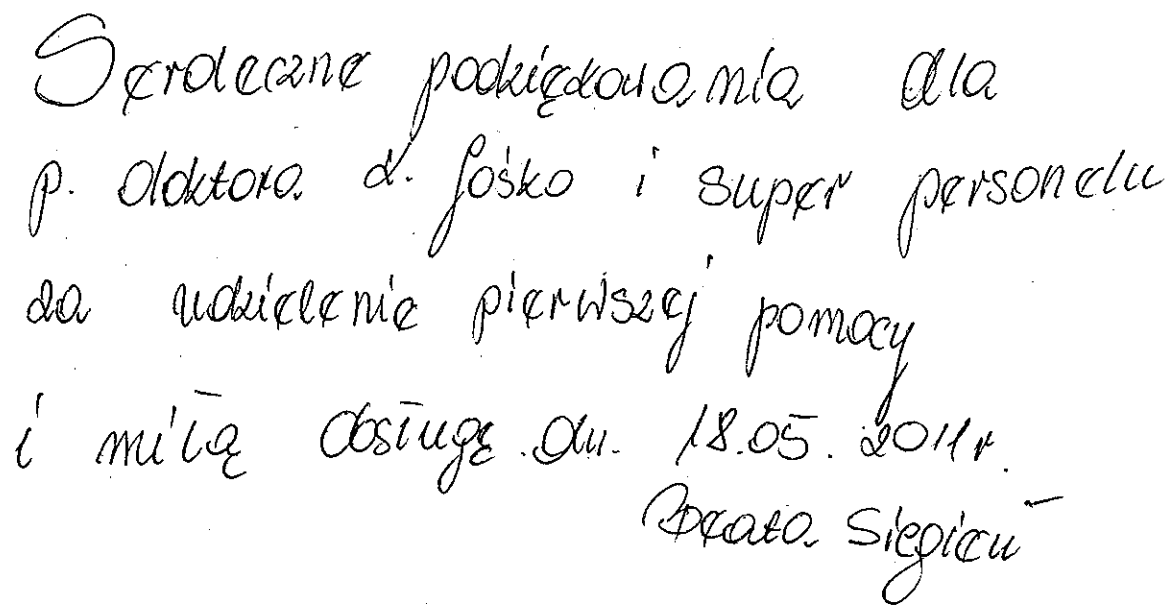 Serdeczne podziękowania dla
p. doktora. d. Jośko i super personelu
za udzielenie pierwszej pomocy
i miłą obsługę. dn. 18.05.2011r.
Beata